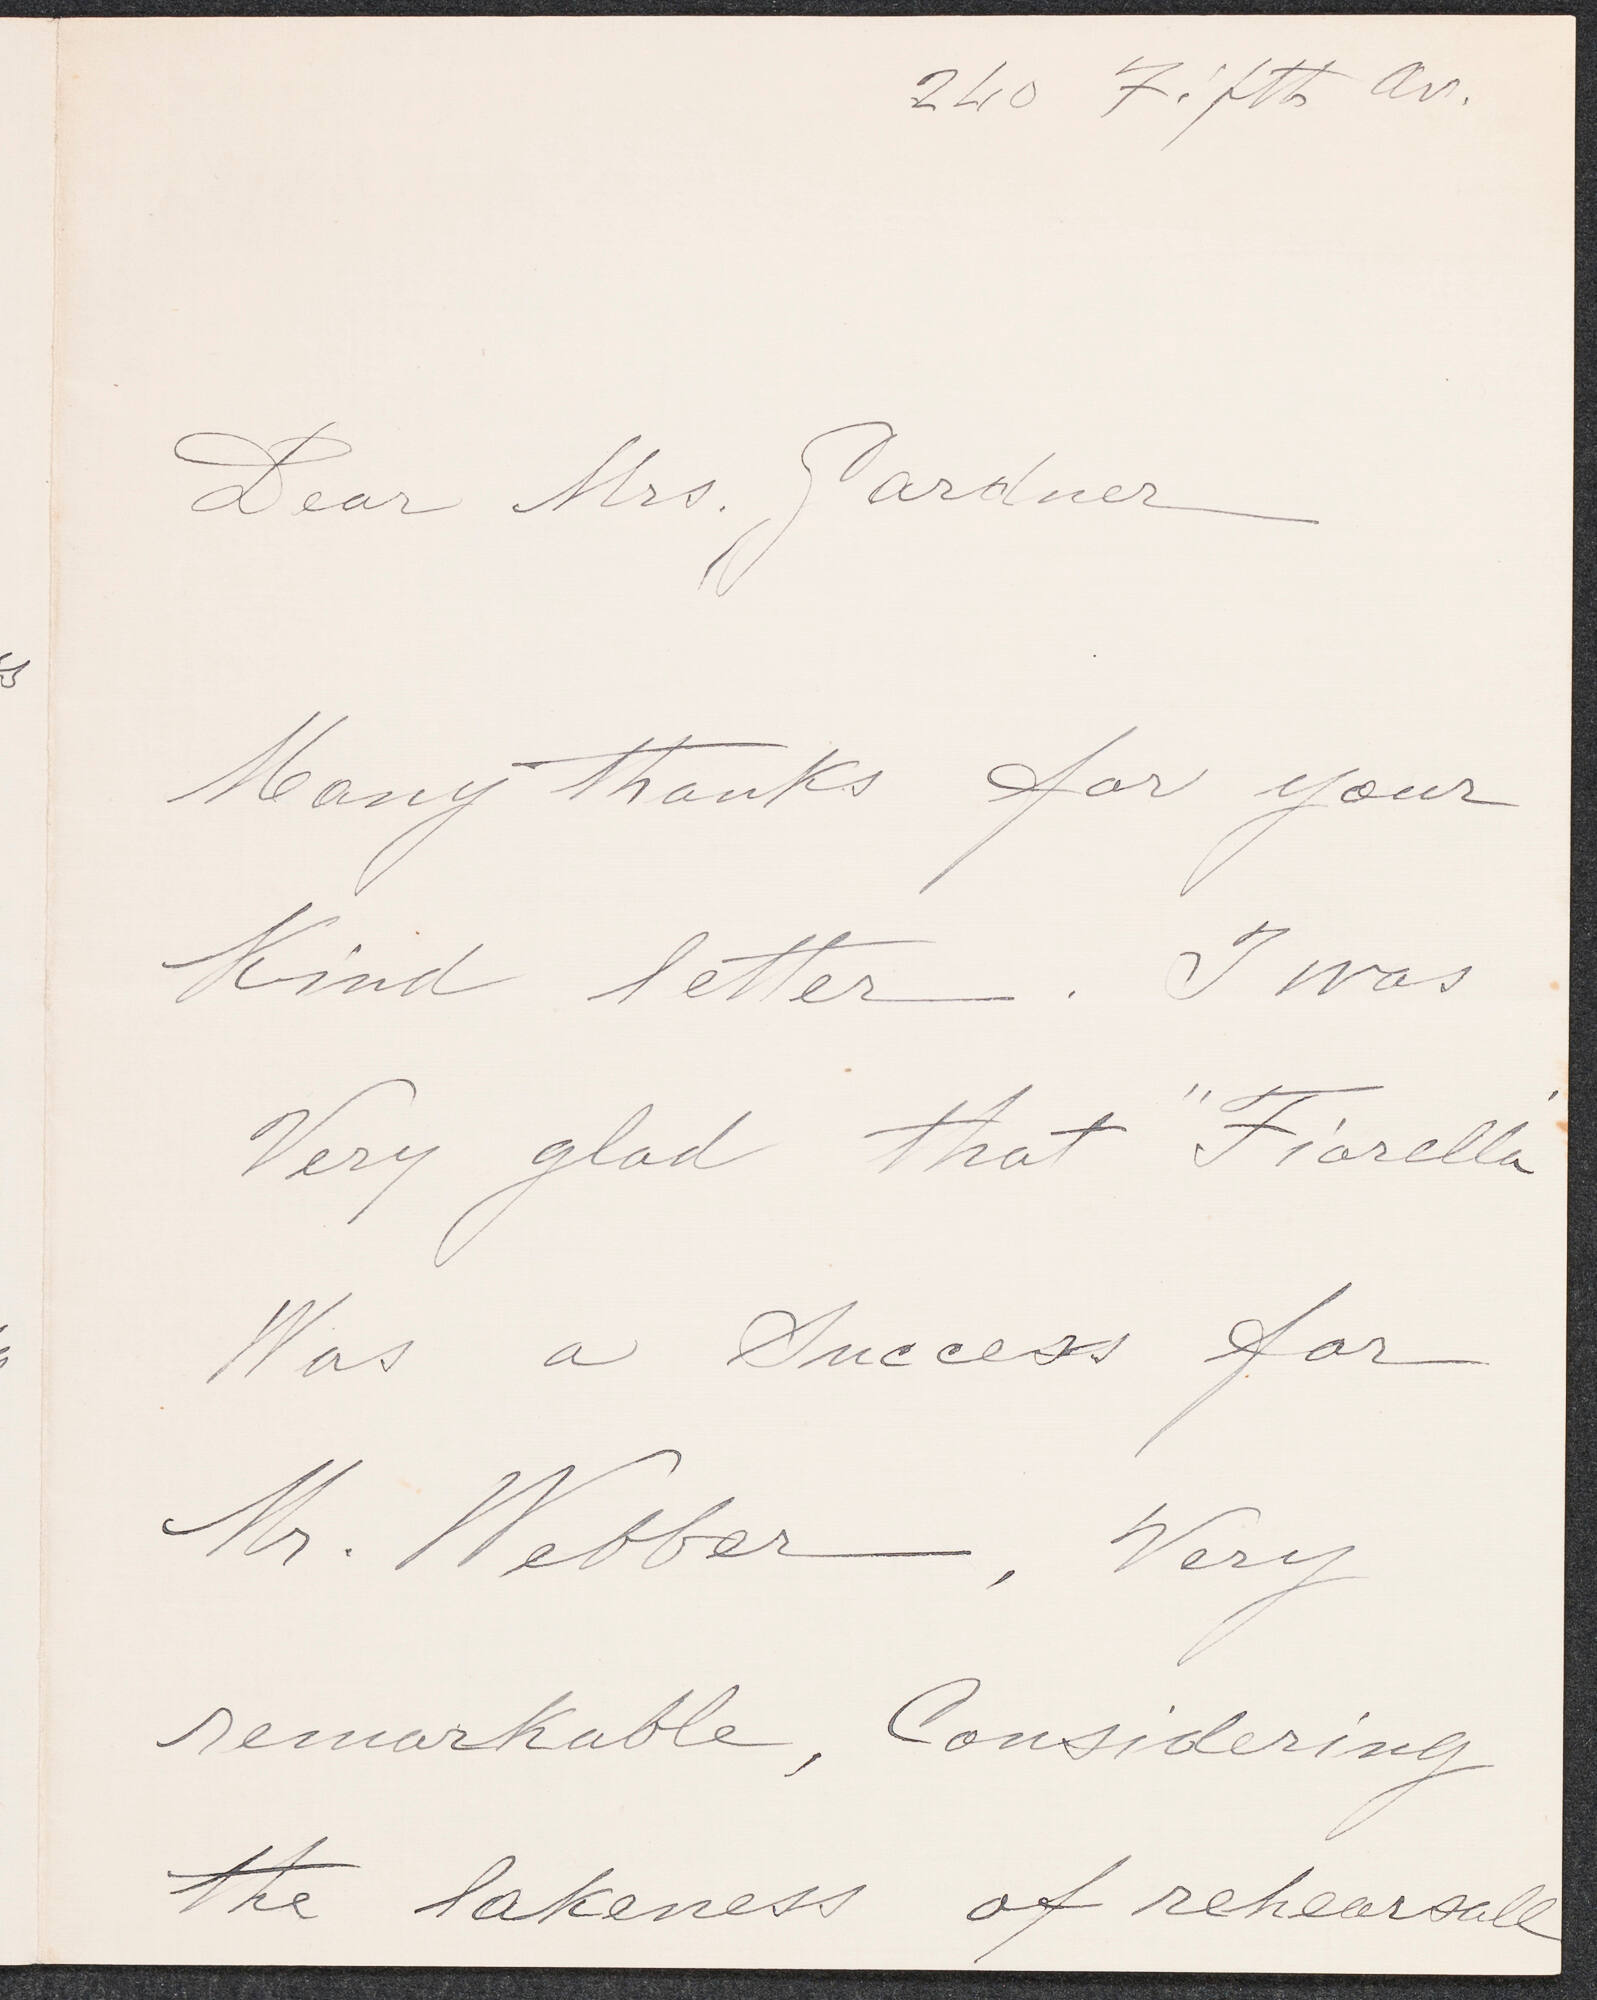 240 Fifth Av.
Dear Mrs. Gardner
Many thanks for your
Kind letter. I was
Very glad that "Fiorella"
Was a Success for
Mr. Webber, Very
remarkable, Considering
the lakeness of rehearsall